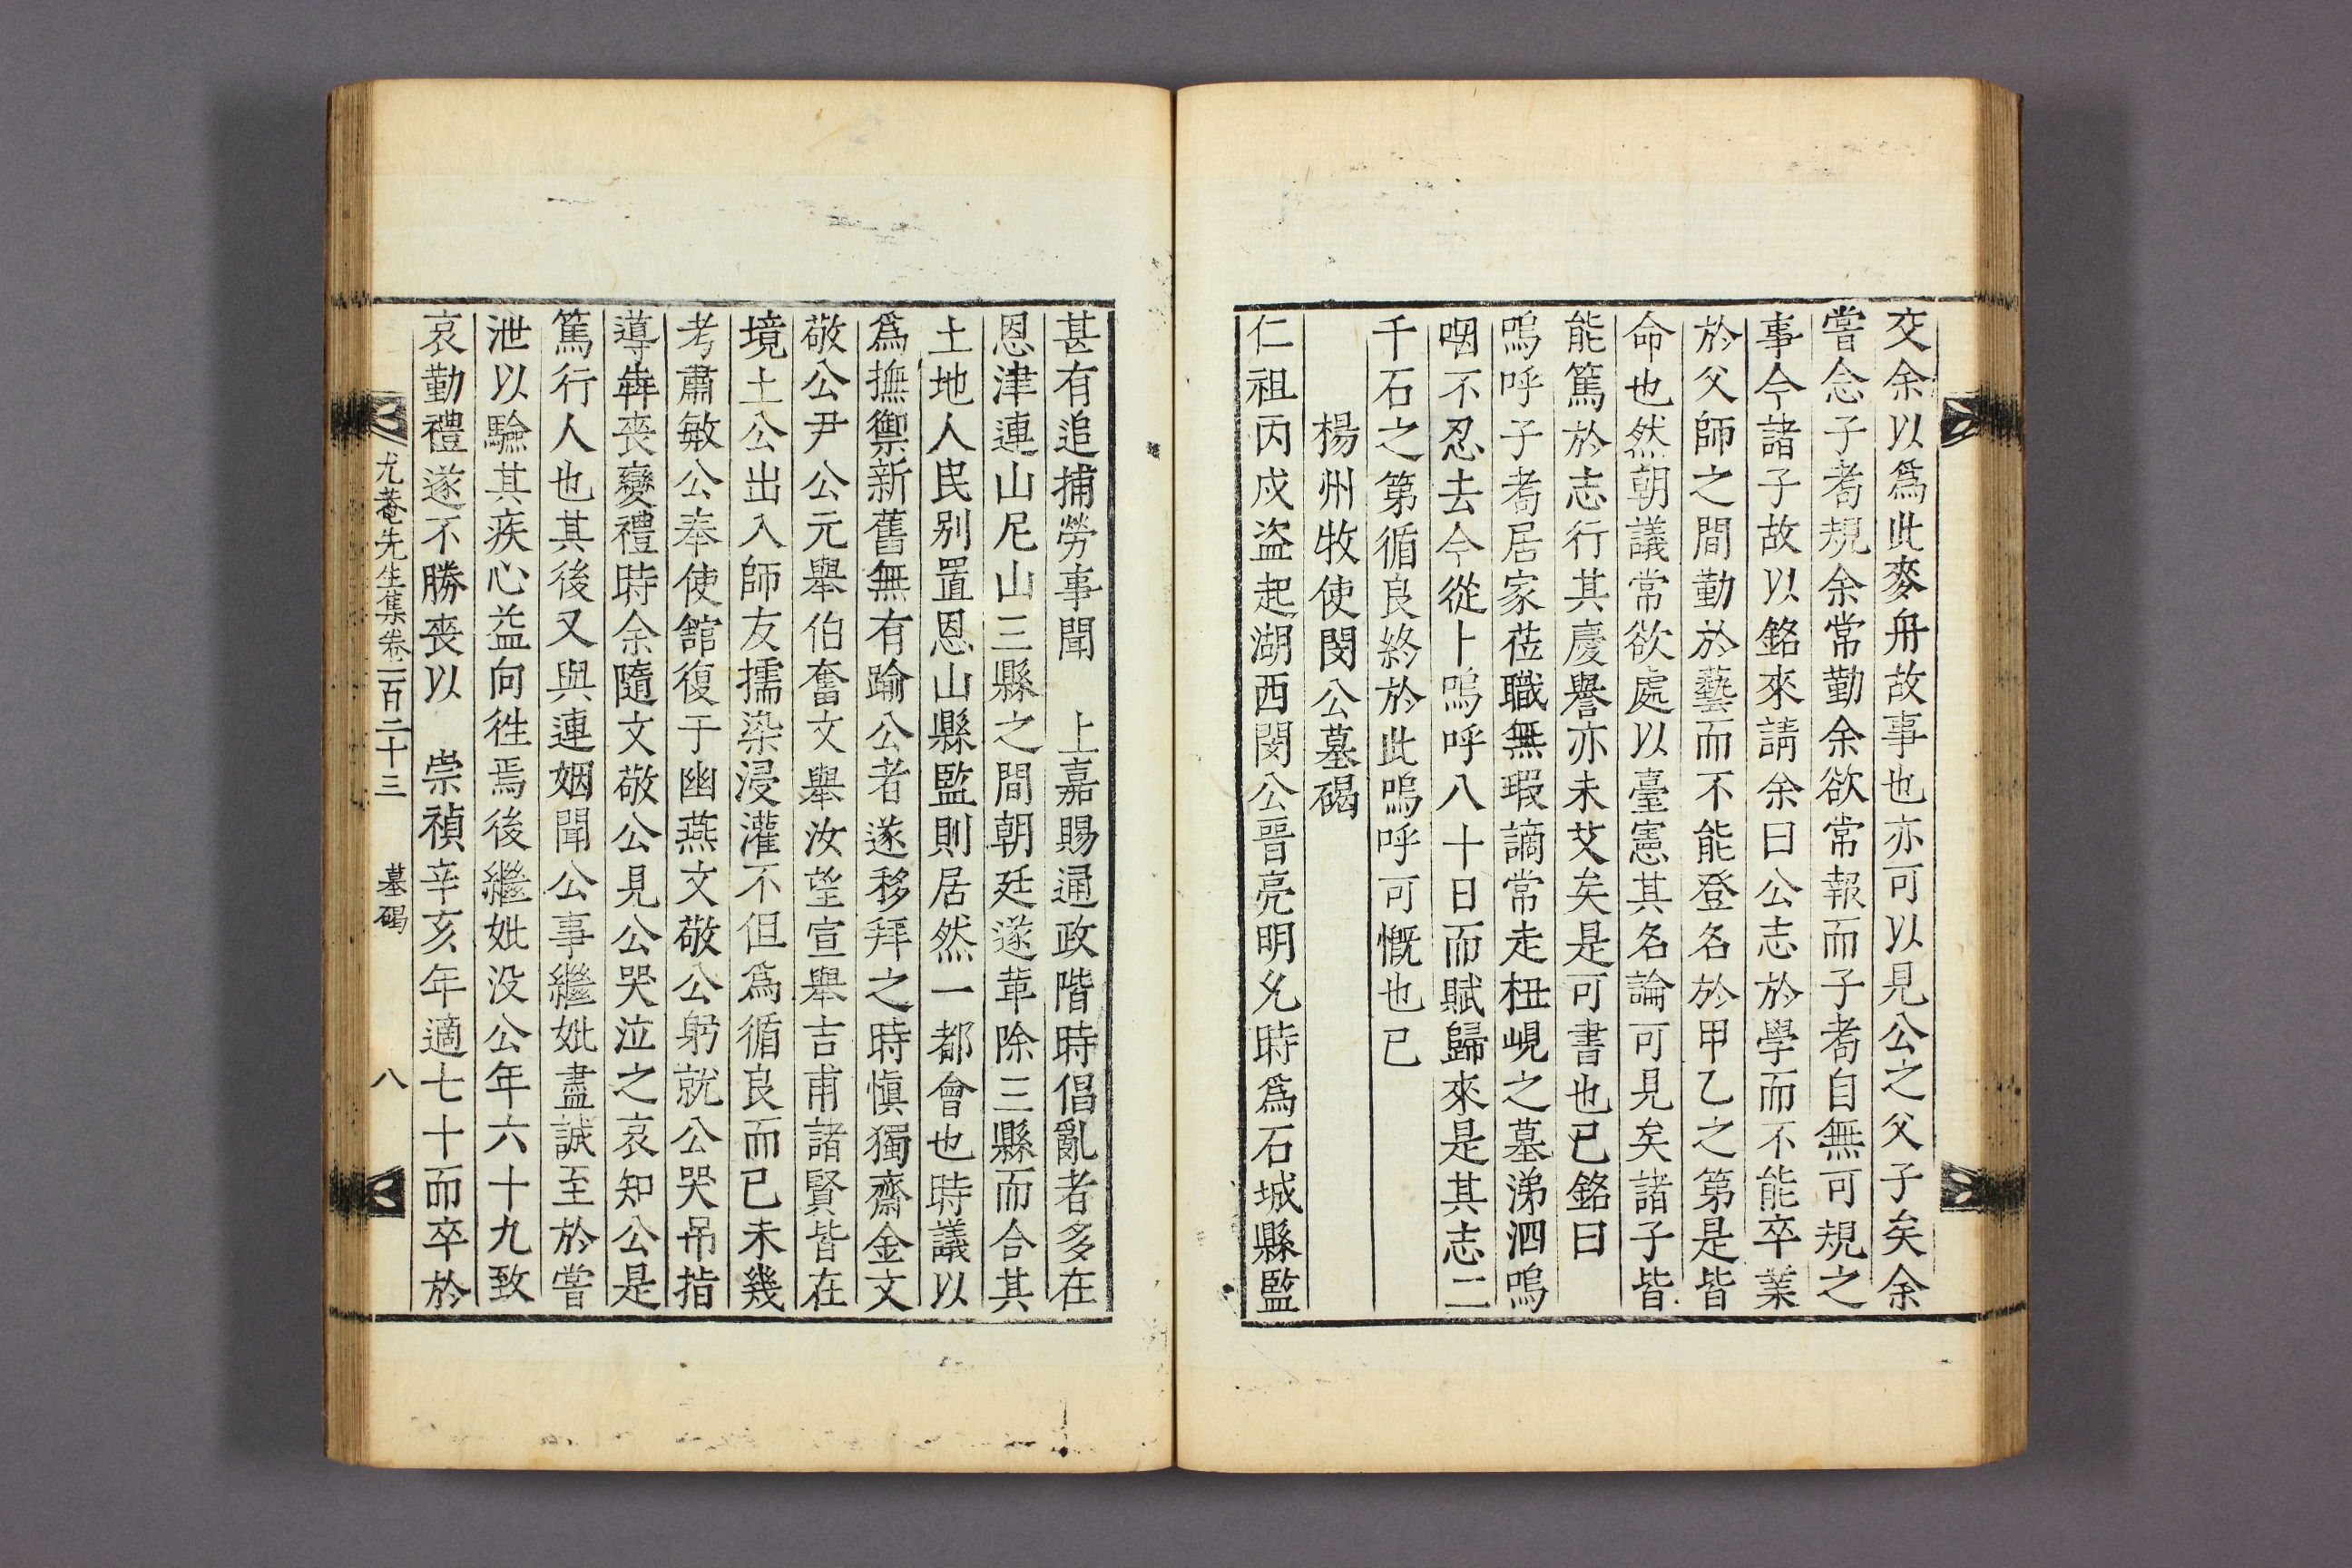 交余以爲此麥舟故事也亦可以見公之父子矣余
嘗念子耈規余常勤余欲常報而子耈自無可規之
事今諸子故以銘來請余曰公志於學而不能卒業
於父師之間勤於藝而不能登名於甲乙之第是皆
命也然朝議常欲處以臺憲其名論可見矣諸子皆
能篤於志行其慶譽亦未艾矣是可書也已銘曰
嗚呼子耈居家莅職無瑕謫常走杻峴之墓涕泗嗚
咽不忍去今從卜嗚呼八十日而賦歸來是其志二
千石之第循良終於此嗚呼可慨也已
楊州牧使閔公墓碣
仁祖丙戍盗起湖西閔公晋亮明允時爲石城縣監
甚有追捕勞事聞 上嘉賜通政階時倡亂者多在
恩津連山尼山三縣之間朝廷遂革除三縣而合其
土地人民別置恩山縣監則居然一都會也時議以
爲撫禦新舊無有踰公者遂移拜之時愼獨齋金文
敬公尹公元擧伯奮文擧汝望宣擧吉甫諸賢皆在
境土公出入師友擩染浸灌不但爲循良而已未幾
考肅敏公奉使舘復于幽燕文敬公躬就公哭吊指
導犇喪變禮時余隨文敬公見公哭泣之哀知公是
篤行人也其後又與連姻聞公事繼妣盡誠至於嘗
泄以驗其疾心益向徃焉後繼妣没公年六十九致
哀勤禮遂不勝喪以 崇禎辛亥年適七十而卒於
尤菴先生集卷一百二十三 墓碣 八